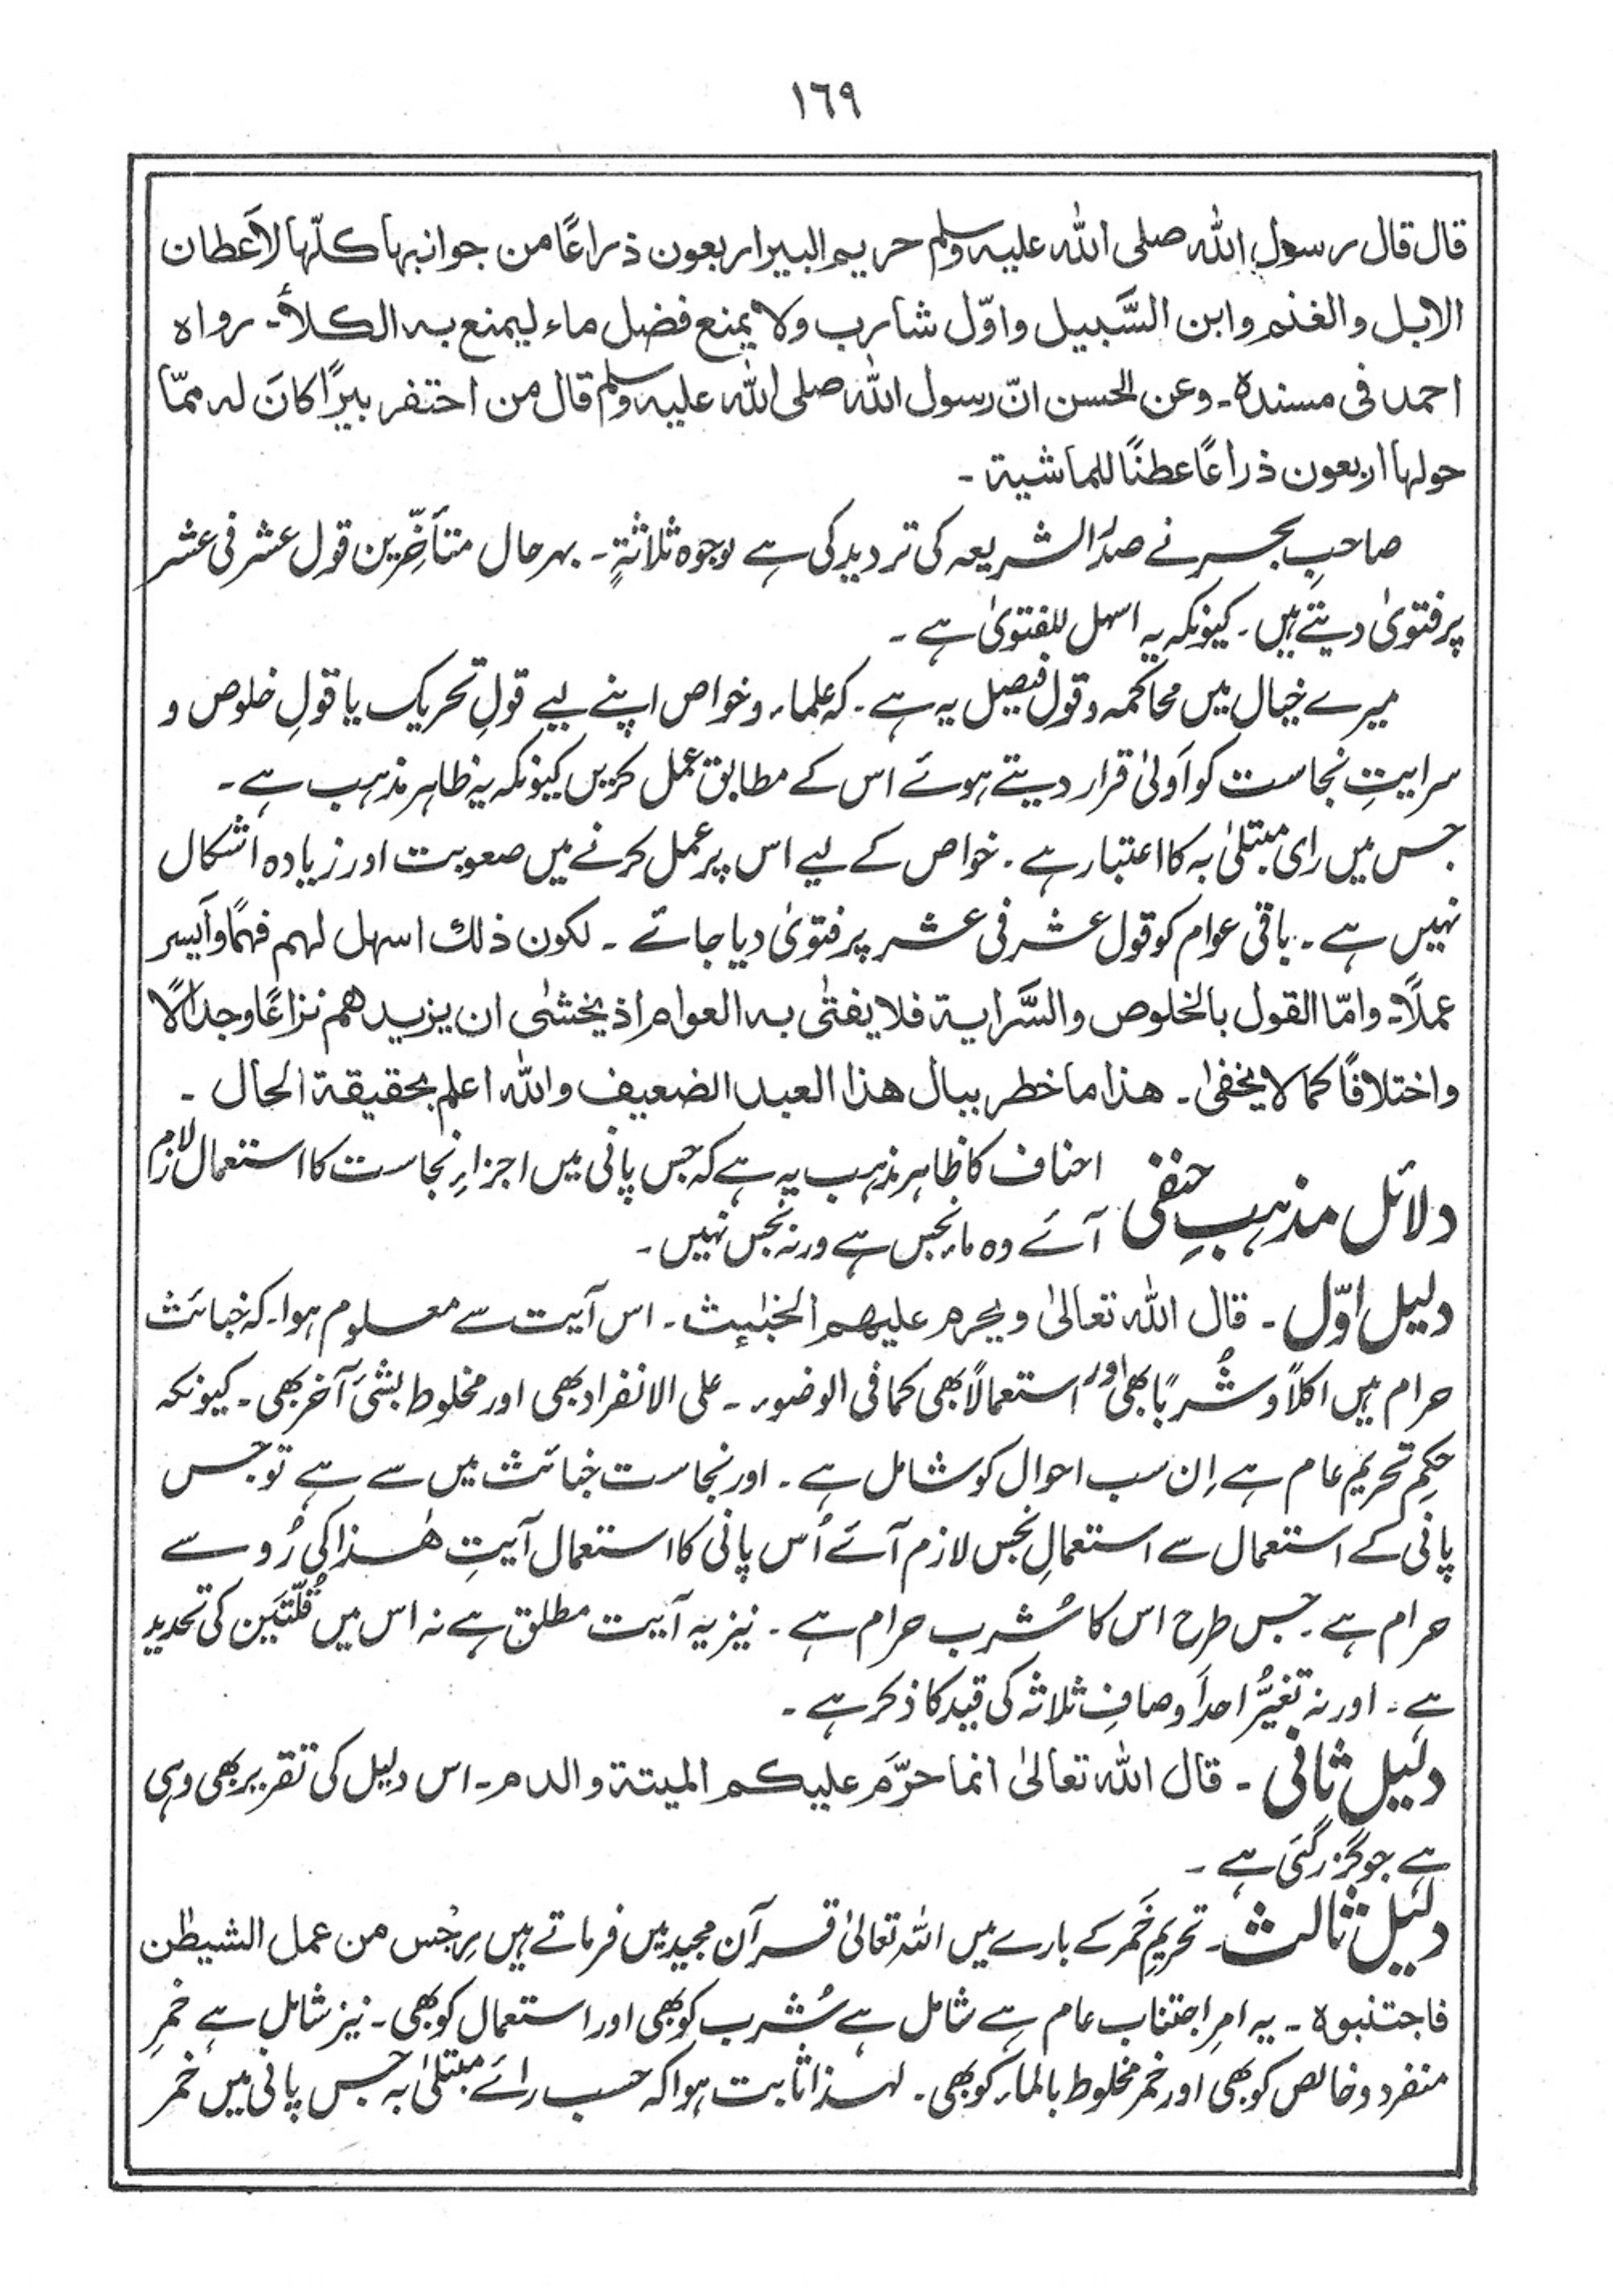 ١٦٩
قال قال رسول الله صلی الله علیہ وسلم حریم البیر اربعون ذراعًا من جوانبہا کلّہا لاَعطان
الابل والغنم وابن السَّبیل واوّل شارب ولا یمنع فضل ماء لیمنع بہ الکلأ۔ رواہ
احمد فی مسندہ۔ وعن الحسن انّ رسول اللہ صلی اللہ علیہ وسلم قال من احتفر بیرًا کانَ لہ ممّا
حولہا اربعون ذراعًا عطنًا للماشیۃ ۔
صاحبِ بحر نے صدرُ الشریعہ کی تردید کی ہے بوجوہ ثلاثۃٍ ۔ بہرحال متأخِّرین قول عشر فی عشر
پر فتویٰ دیتے ہیں ۔ کیونکہ یہ اسہل للفتویٰ ہے ۔
میرے خیال میں محاکمہ و قول فیصل یہ ہے ۔ کہ علماء و خواص اپنے لیے قولِ تحریک یا قولِ خلوص و
سرایتِ نجاست کو اَولیٰ قرار دیتے ہوئے اس کے مطابق عمل کریں کیونکہ یہ ظاہر مذہب ہے ۔
جس میں رای مبتلیٰ بہ کا اعتبار ہے ۔ خواص کے لیے اس پر عمل کرنے میں صعوبت اور زیادہ اشکال
نہیں ہے ۔ باقی عوام کو قول عشر فی عشر پر فتویٰ دیا جائے ۔ لکون ذلك اسہل لہم فہمًا وأیسر
عملًا۔ وامّا القول بالخلوص والسَّرایۃ فلا یفتٰی بہ العوام اذ یخشٰی ان یزیدھم نزاعًا وجدالًا
واختلافًا کما لا یخفیٰ ۔ ھذا ما خطر ببال ھذا العبد الضعیف واللہ اعلم بحقیقۃ الحال ۔
دلائل مذہبِ حنفی احناف کا ظاہر مذہب یہ ہے کہ جس پانی میں اجزاءِ نجاست کا استعمال لازم
آئے وہ ماء نجس ہے ورنہ نجس نہیں ۔
دلیل اوّل ۔ قال اللہ تعالیٰ ویحرم علیہم الخبٰئث ۔ اس آیت سے معلوم ہوا ۔ کہ خبائث
حرام ہیں اکلاً و شُربًا بھی اور استعمالاً بھی کما فی الوضوء ۔ علی الانفراد بھی اور مخلوط بشیٔ آخر بھی ۔ کیونکہ
حکمِ تحریم عام ہے اِن سب احوال کو شامل ہے ۔ اور نجاست خبائث میں سے ہے تو جس
پانی کے استعمال سے استعمالِ نجس لازم آئے اُس پانی کا استعمال آیتِ ھٰذا کی رُو سے
حرام ہے ۔ جس طرح اس کا شُرب حرام ہے ۔ نیز یہ آیت مطلق ہے نہ اس میں قُلّتَین کی تحدید
ہے ۔ اور نہ تغیُّر احدِ اَوصافِ ثلاثہ کی قید کا ذکر ہے ۔
دلیل ثانی ۔ قال اللہ تعالیٰ انما حرّم علیکم المیتۃ والدم ۔ اس دلیل کی تقریر بھی وہی
ہے جو گزر گئی ہے ۔
دلیل ثالث ۔ تحریمِ خَمر کے بارے میں اللہ تعالیٰ قرآن مجید میں فرماتے ہیں رِجْس من عمل الشیطٰن
فاجتنبوہ ۔ یہ امرِ اجتناب عام ہے شامل ہے شُرب کو بھی اور استعمال کو بھی ۔ نیز شامل ہے خمرِ
منفرد و خالص کو بھی اور خمر مخلوط بالماء کو بھی ۔ لہٰذا ثابت ہوا کہ حسب رائے مبتلیٰ بہ جس پانی میں خمر